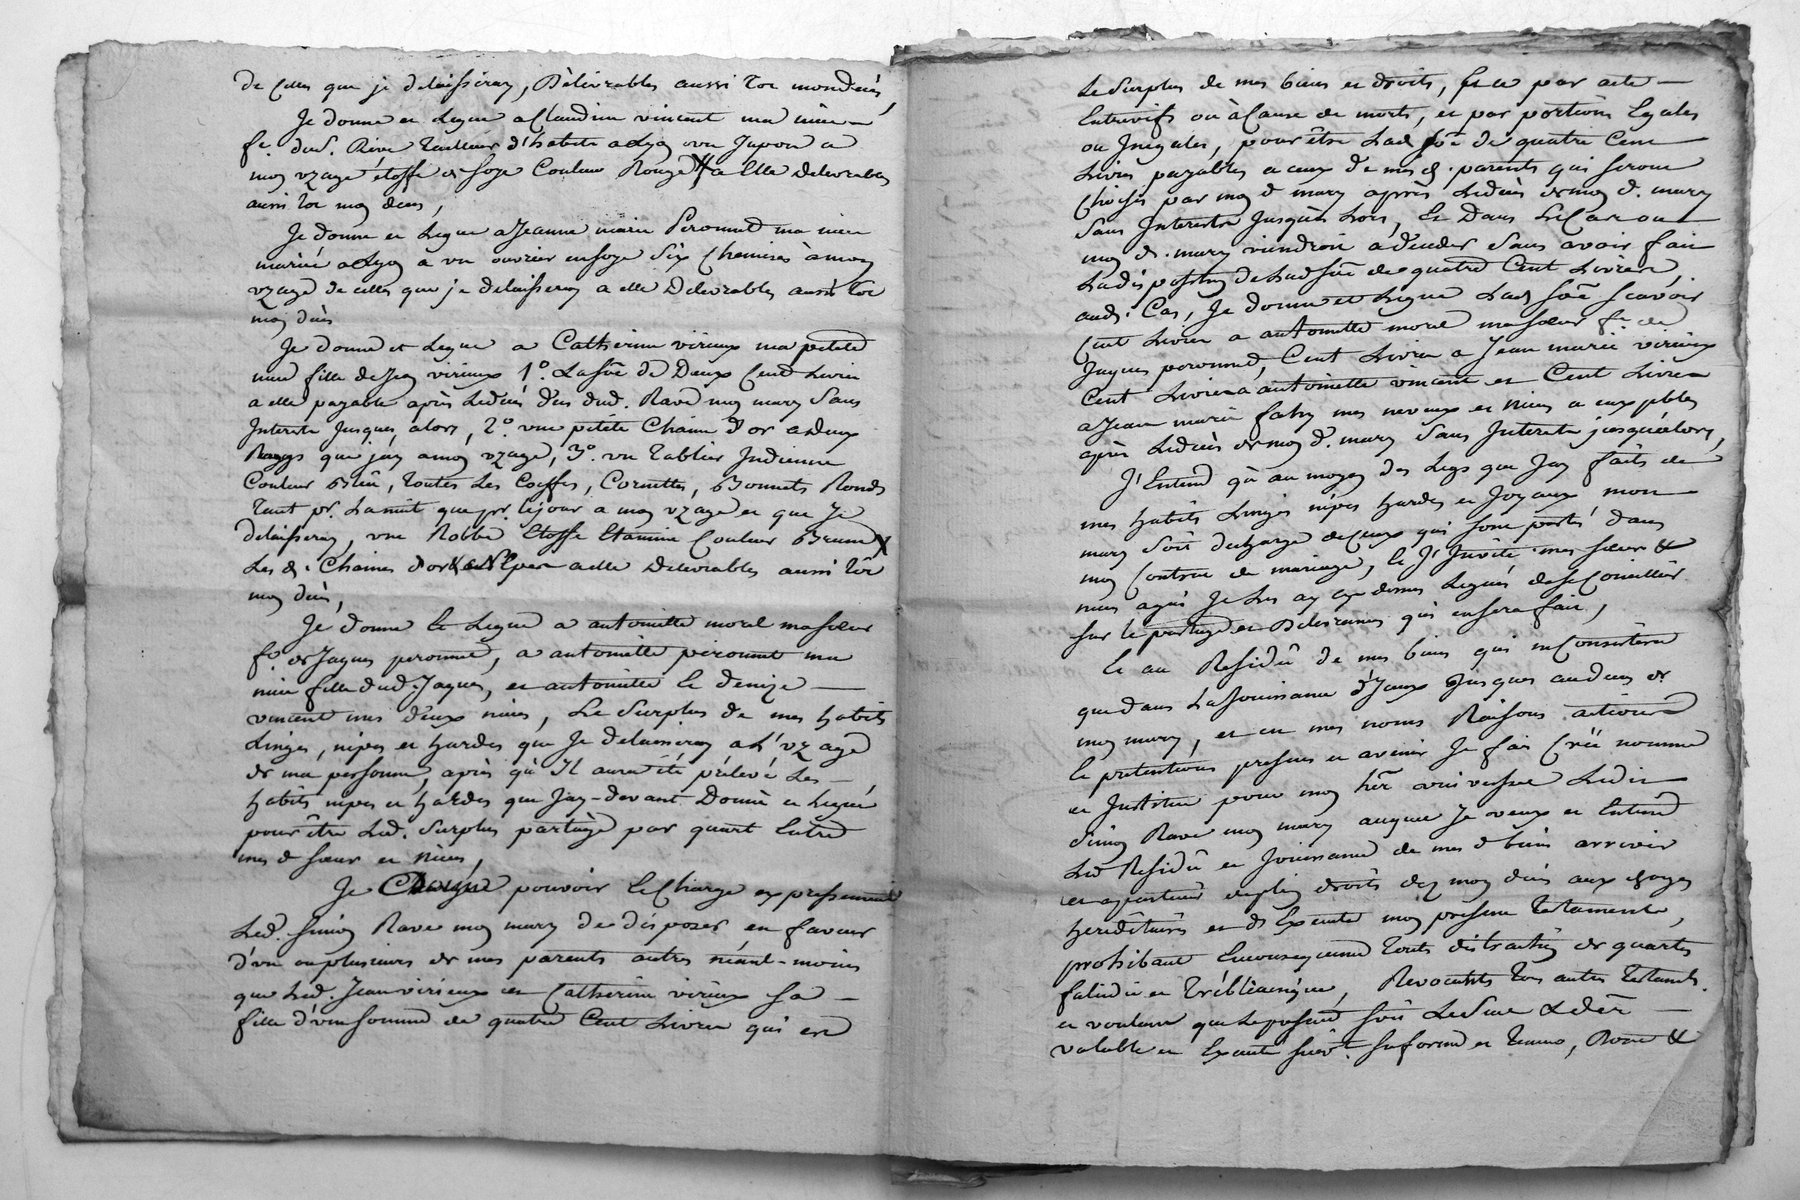 de celles que je delaisseray, Délivrables aussi tot mon décès,
Je donne et Legue a Claudine vincent ma niéce
fe. dud. Réve Tailleur d'habits a Lyon vne Jupon a
mon vzage étoffe de soye Couleur Rouge a Elle delivrables
aussi tot mon deces,
Je donne et Legue a Jeanne marie Peronnet ma niéce
mariée a Lyon a vn ouvrier en soye Six Chemises à mon
vzage de celles que je delaisseray a elle Delivrables aussi tot
mon décès
Je donne et Legue a Catherine virieux ma petite
niéce fille de Jean virieux 1°. La sõe de Deux Cent Livres
a elle payable après Le décès dud. Rave mon mary Sans
Interets Jusques alors, 2°. vne petite Chaine d'or a deux
Rangs que j'ay a mon vzage, 3°. vn Tablier Indienne
Couleur Bleü, Toutes Les Coeffes, Cornettes, Bonnets Ronds
Tant pr. La nuit que pr. le jour a mon vzage et que Je
delaisseray, vne Robbe Etoffe Etamine Couleur Brune
Les d. Chaines d'or a elle Delivrables aussi tôt
mon décès,
Je donne Et Legue a antoinette morel ma sœur
fe. de Jaques peronnet, a antoinette peronnet ma
niéce fille dud. Jaques, et antoinette Et denize
vincent mes deux niéces, Le Surplus de mes habits
Linges, nipes et hardes que Je delaisseray a L'vzage
de ma personne, après qu'Il aura été prélevé Les
habits nipes et hardes que J'ay-devant Donné et Legué
pour être Led. Surplus partagé par quart Entre
mes d sœur et niéces,
Je Donne pouvoir Et Charge expressement
Led. Simon Rave mon mary de disposer en faveur
d'vn ou plusieurs de mes parents autres néant-moins
que Led. Jean virieux et Catherine virieux sa
fille d'vne somme de quatre Cent Livres qui est
Le Surplus de mes biens et droits, Et ce par acte
Entrevifs ou à Cause de morts, et par portions Egales
ou Inegales, pour être Lad. sõe de quatre Cent
Livres payables a ceux de mes d. parents qui seront
Choisis par mon d mary après Le décès de mon d. mary
Sans Interets Jusques Lors, Et Dans Le Cas ou
mon d. mary viendroit à déceder Sans avoir fait
La disposition de Lad sõe de quatre Cent Livres,
aud. Cas, Je donne et Legue Lad. sõe Scavoir
Cent Livres a antoinette morel ma sœur fe. de
Jaques peronnet, Cent Livres a Jean marie virieux
Cent Livres a antoinette vincent et Cent Livres
a Jean marie fahy mes neveux et niéces a eux pbles
après Le décès de mon d. mary Sans Interets jusqu'alors,
J'Entend qu'au moyen des Legs que J'ay faits de
mes habits Linges nipes hardes et Joyaux mon
mary Soit decharge de Ceux qui sont portés dans
mon Contrat de mariage, Et J'Invite mes sœur &
niéces a qui Je Les ay cy dessus Legués de se Concilier
sur le partage et Delivrance qui en sera fait,
Et au Residû de mes biens qui ne Consistera
que dans La Jouissance d'Jceux Jusques au deces de
mon mary, et en mes noms Raisons actions
Et pretentions presens et avenir Je fais Créé nomme
et Institue pour mon hér. vniversel Ledit
Simon Rave mon mary auquel Je veux et Entend
Led Residû et Jouissance de mes d biens arriver
et apartenir de plein droit dez mon décès aux charges
héréditaires et d'Executer mon present Testament,
prohibant En consequence toute distraction de quarte
falcidie et Trébellianique, Revocants tous autres Testamts.
et voulant que Le present soit Le Seul & der
valable et Execute suivt. sa forme et teneur, Rome &